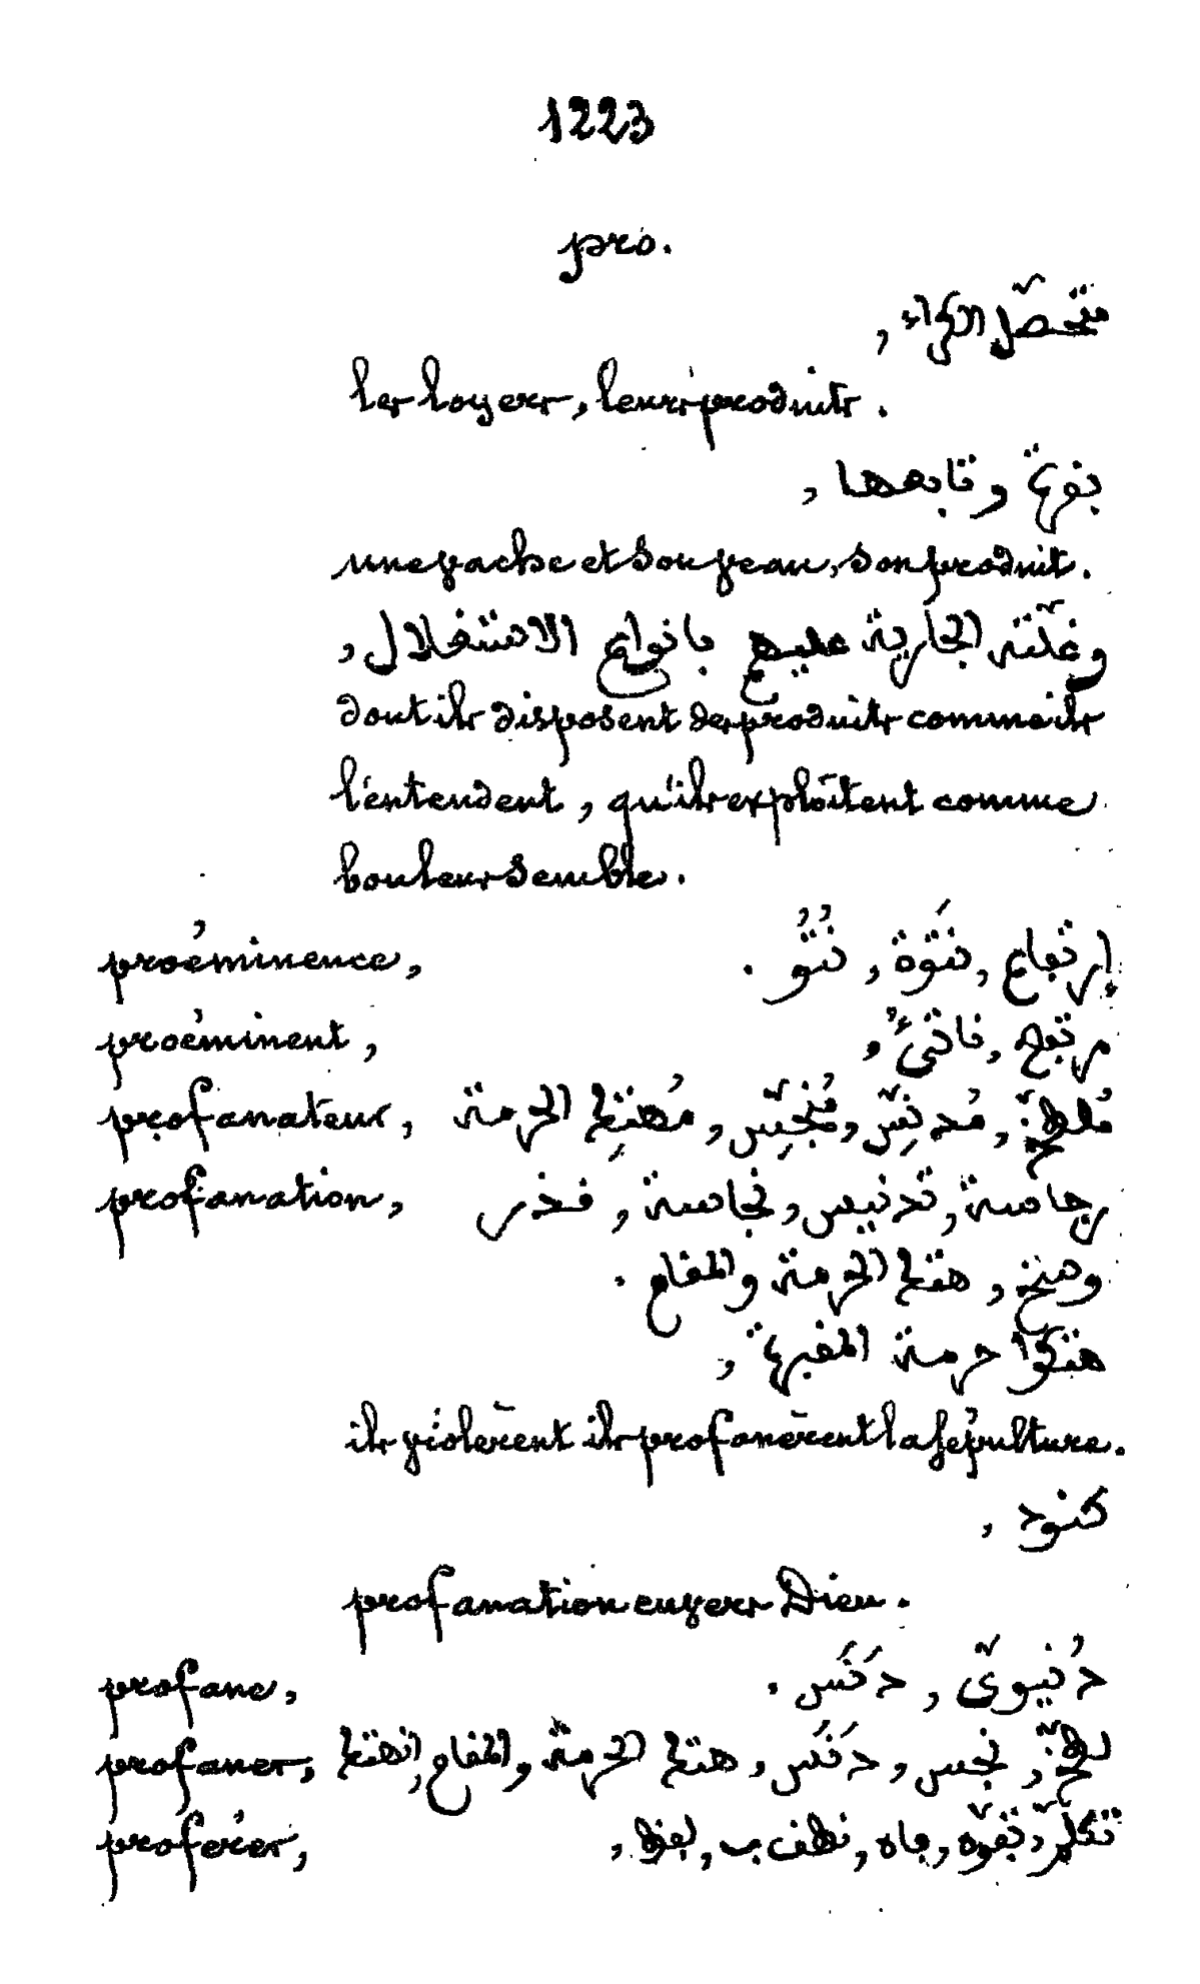 1223
pro.
متحصّل الكراء,
les loyers, leurs produits.
بقرة وتابعها,
une vache et son veau, son produit.
وغلّته الجارية عليهم بانواع الاستغلال,
dont ils disposent des produits comme ils
l'entendent, qu'ils exploitent comme
bon leur semble.
proéminence, إرتفاع, نَتوّة, نُتُوّ.
proéminent, مرتفع, ناتئٌ,
profanateur, مُلطّخ, مُدنِّس, مُنجِّس, مُهتِك الحرمة
profanation, رجاسة, تدنيس, نجاسة, قذر
وسخ, هتك الحرمة والمقام.
هتكوا حرمة المقبرة,
ils violèrent ils profanèrent la sépulture.
كنود,
profanation envers Dieu.
profane, دُنيويّ, دَنَس.
profaner, لطّخ, نجس, دَنَس, هتك الحرمة والمقام, إنهتك
proférer, تكلّم, تفوّه, فاه, نطق ب, لفظ,